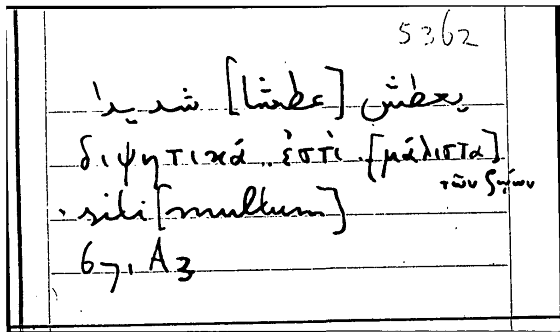 5362
يعطش [عطشا] شديدا
διψητικά ἐστὶ [μάλιστα]
τῶν ζῴων
siti [multum]
67, A3